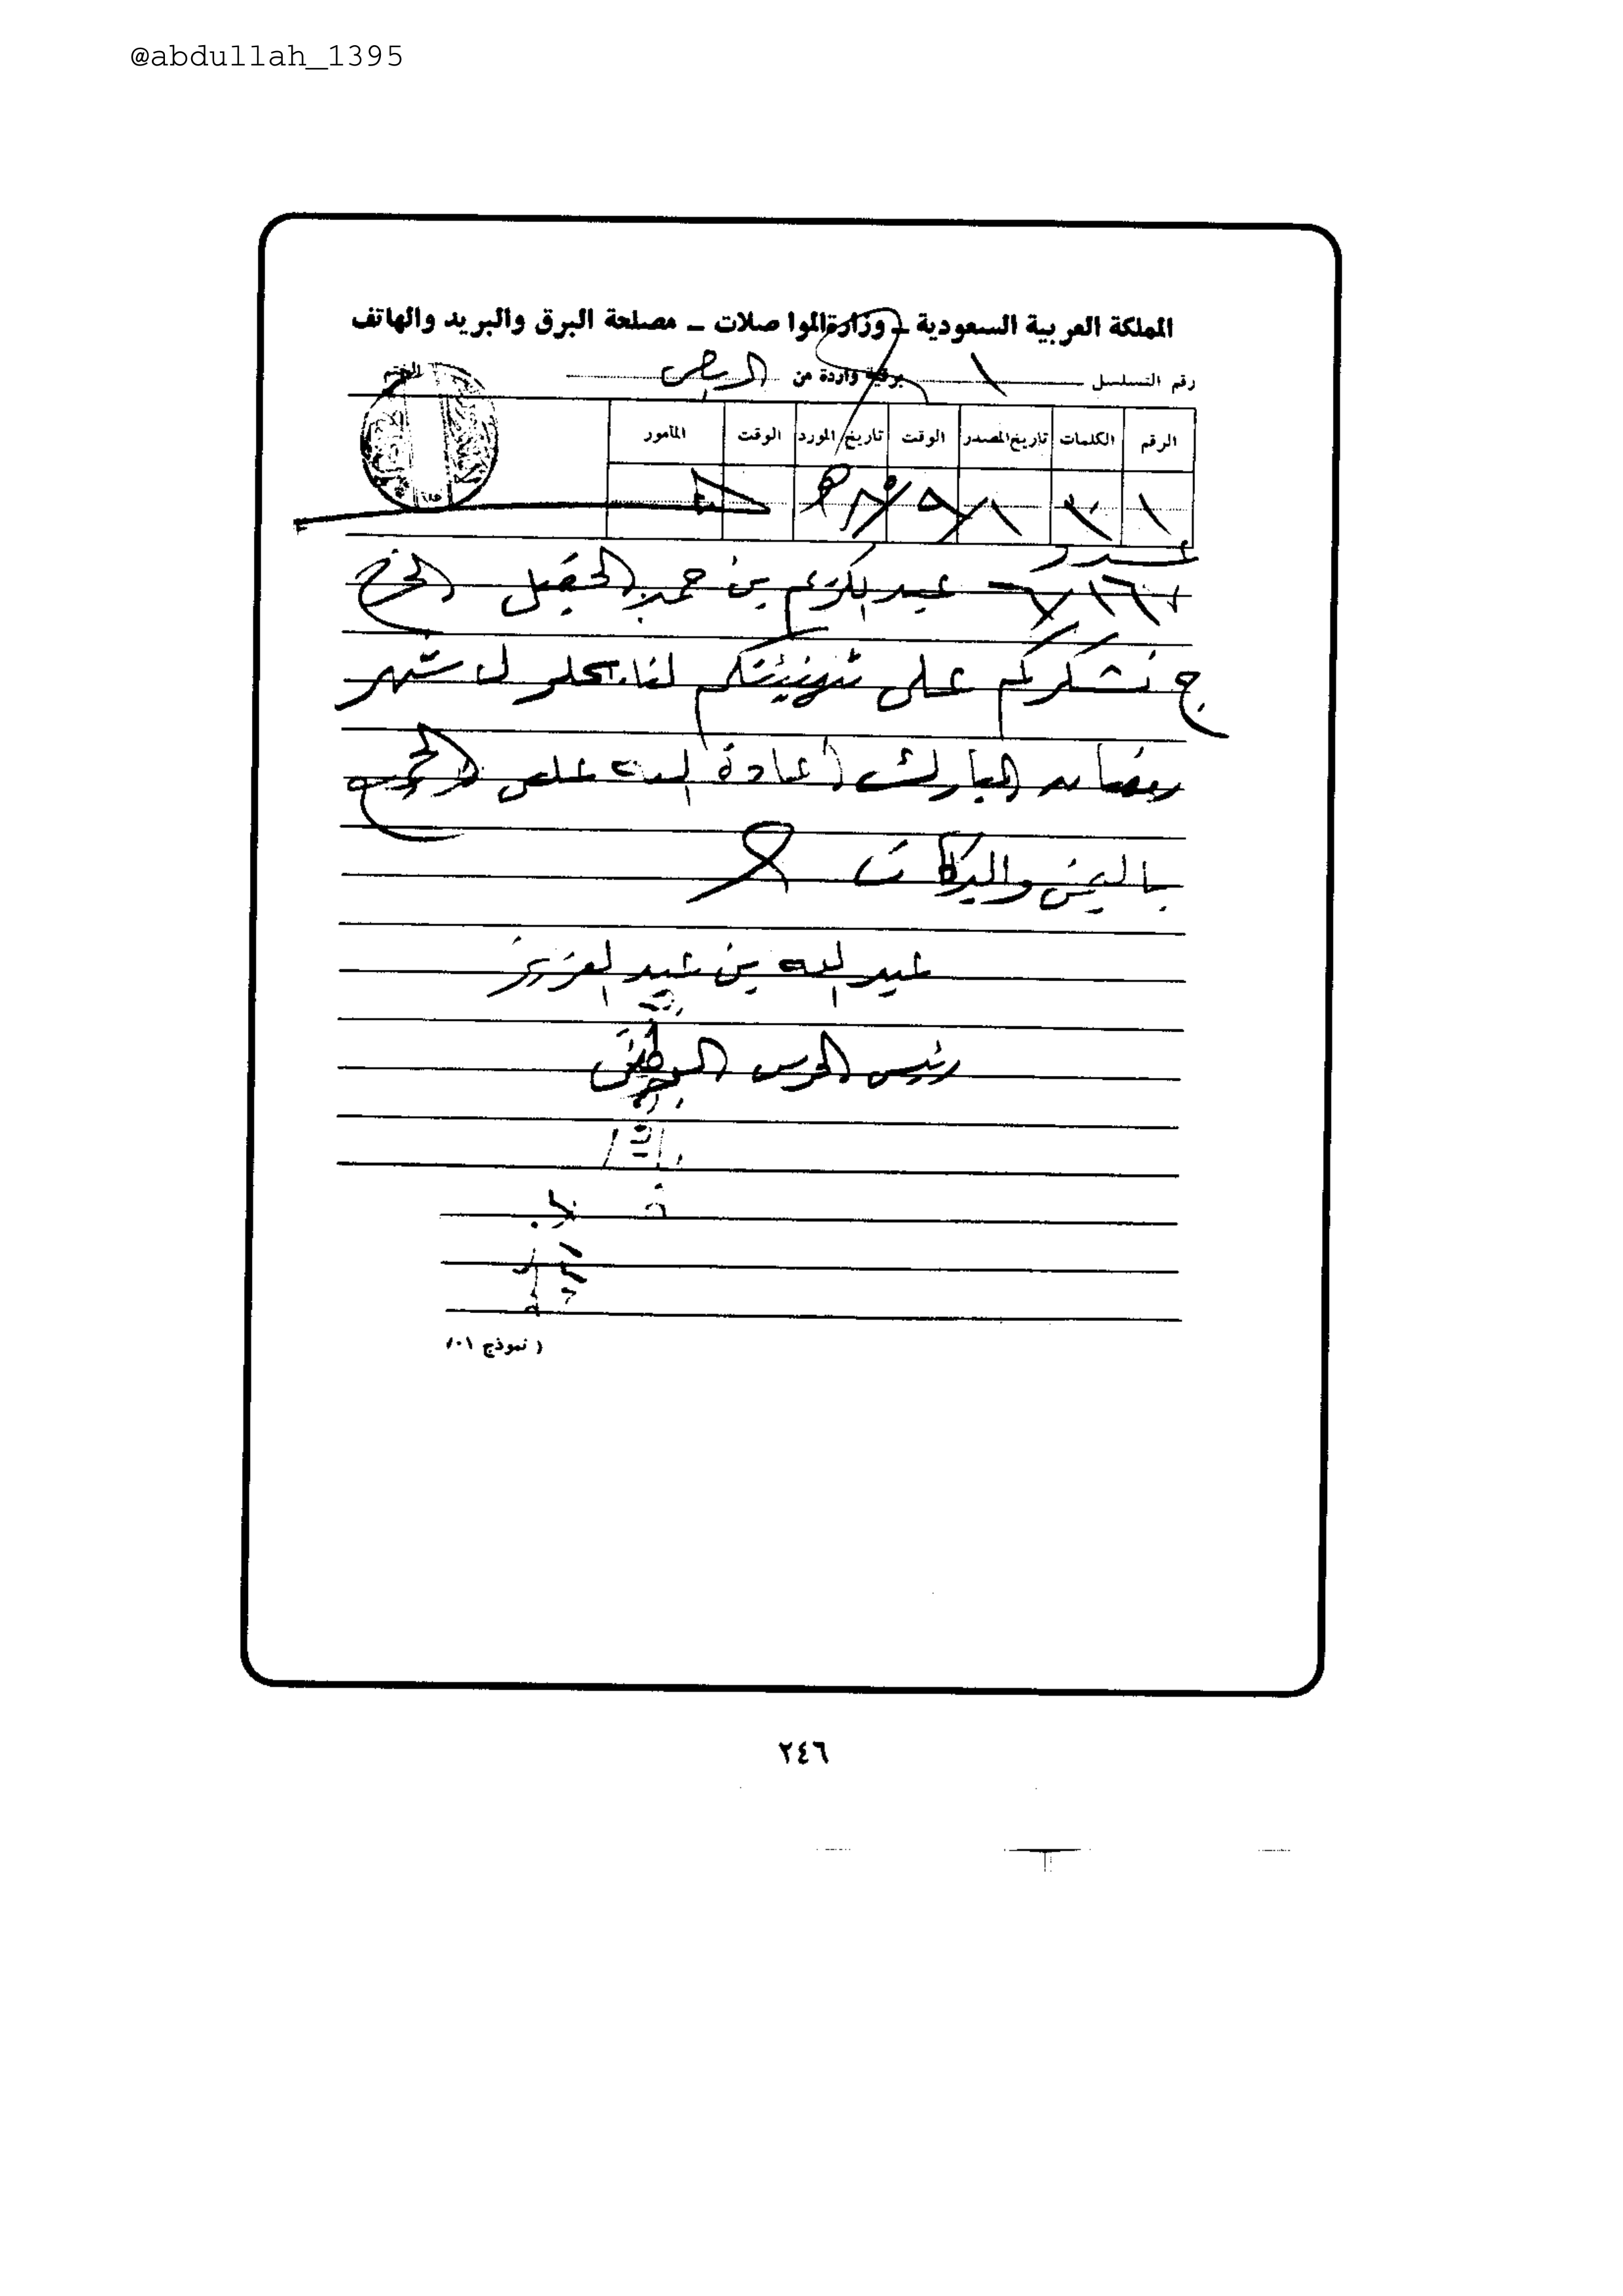 @abdullah_1395
المملكة العربية السعودية – وزارة المواصلات – مصلحة البرق والبريد والهاتف
رقم التسلسل ١ برقية واردة من الرياض الختم
الرقم الكلمات تاريخ المصدر الوقت تاريخ المورد الوقت المأمور
عدد
عبدالكريم بن حمد الحقيل الخرج
ج نشكركم على تهنئتكم لنا بحلول شهر
رمضان المبارك أعادة الله على الجميع
باليمن والبركات
عبد الله بن عبد العزيز
رئيس الحرس الوطني
( نموذج ١٠١
٢٤٦